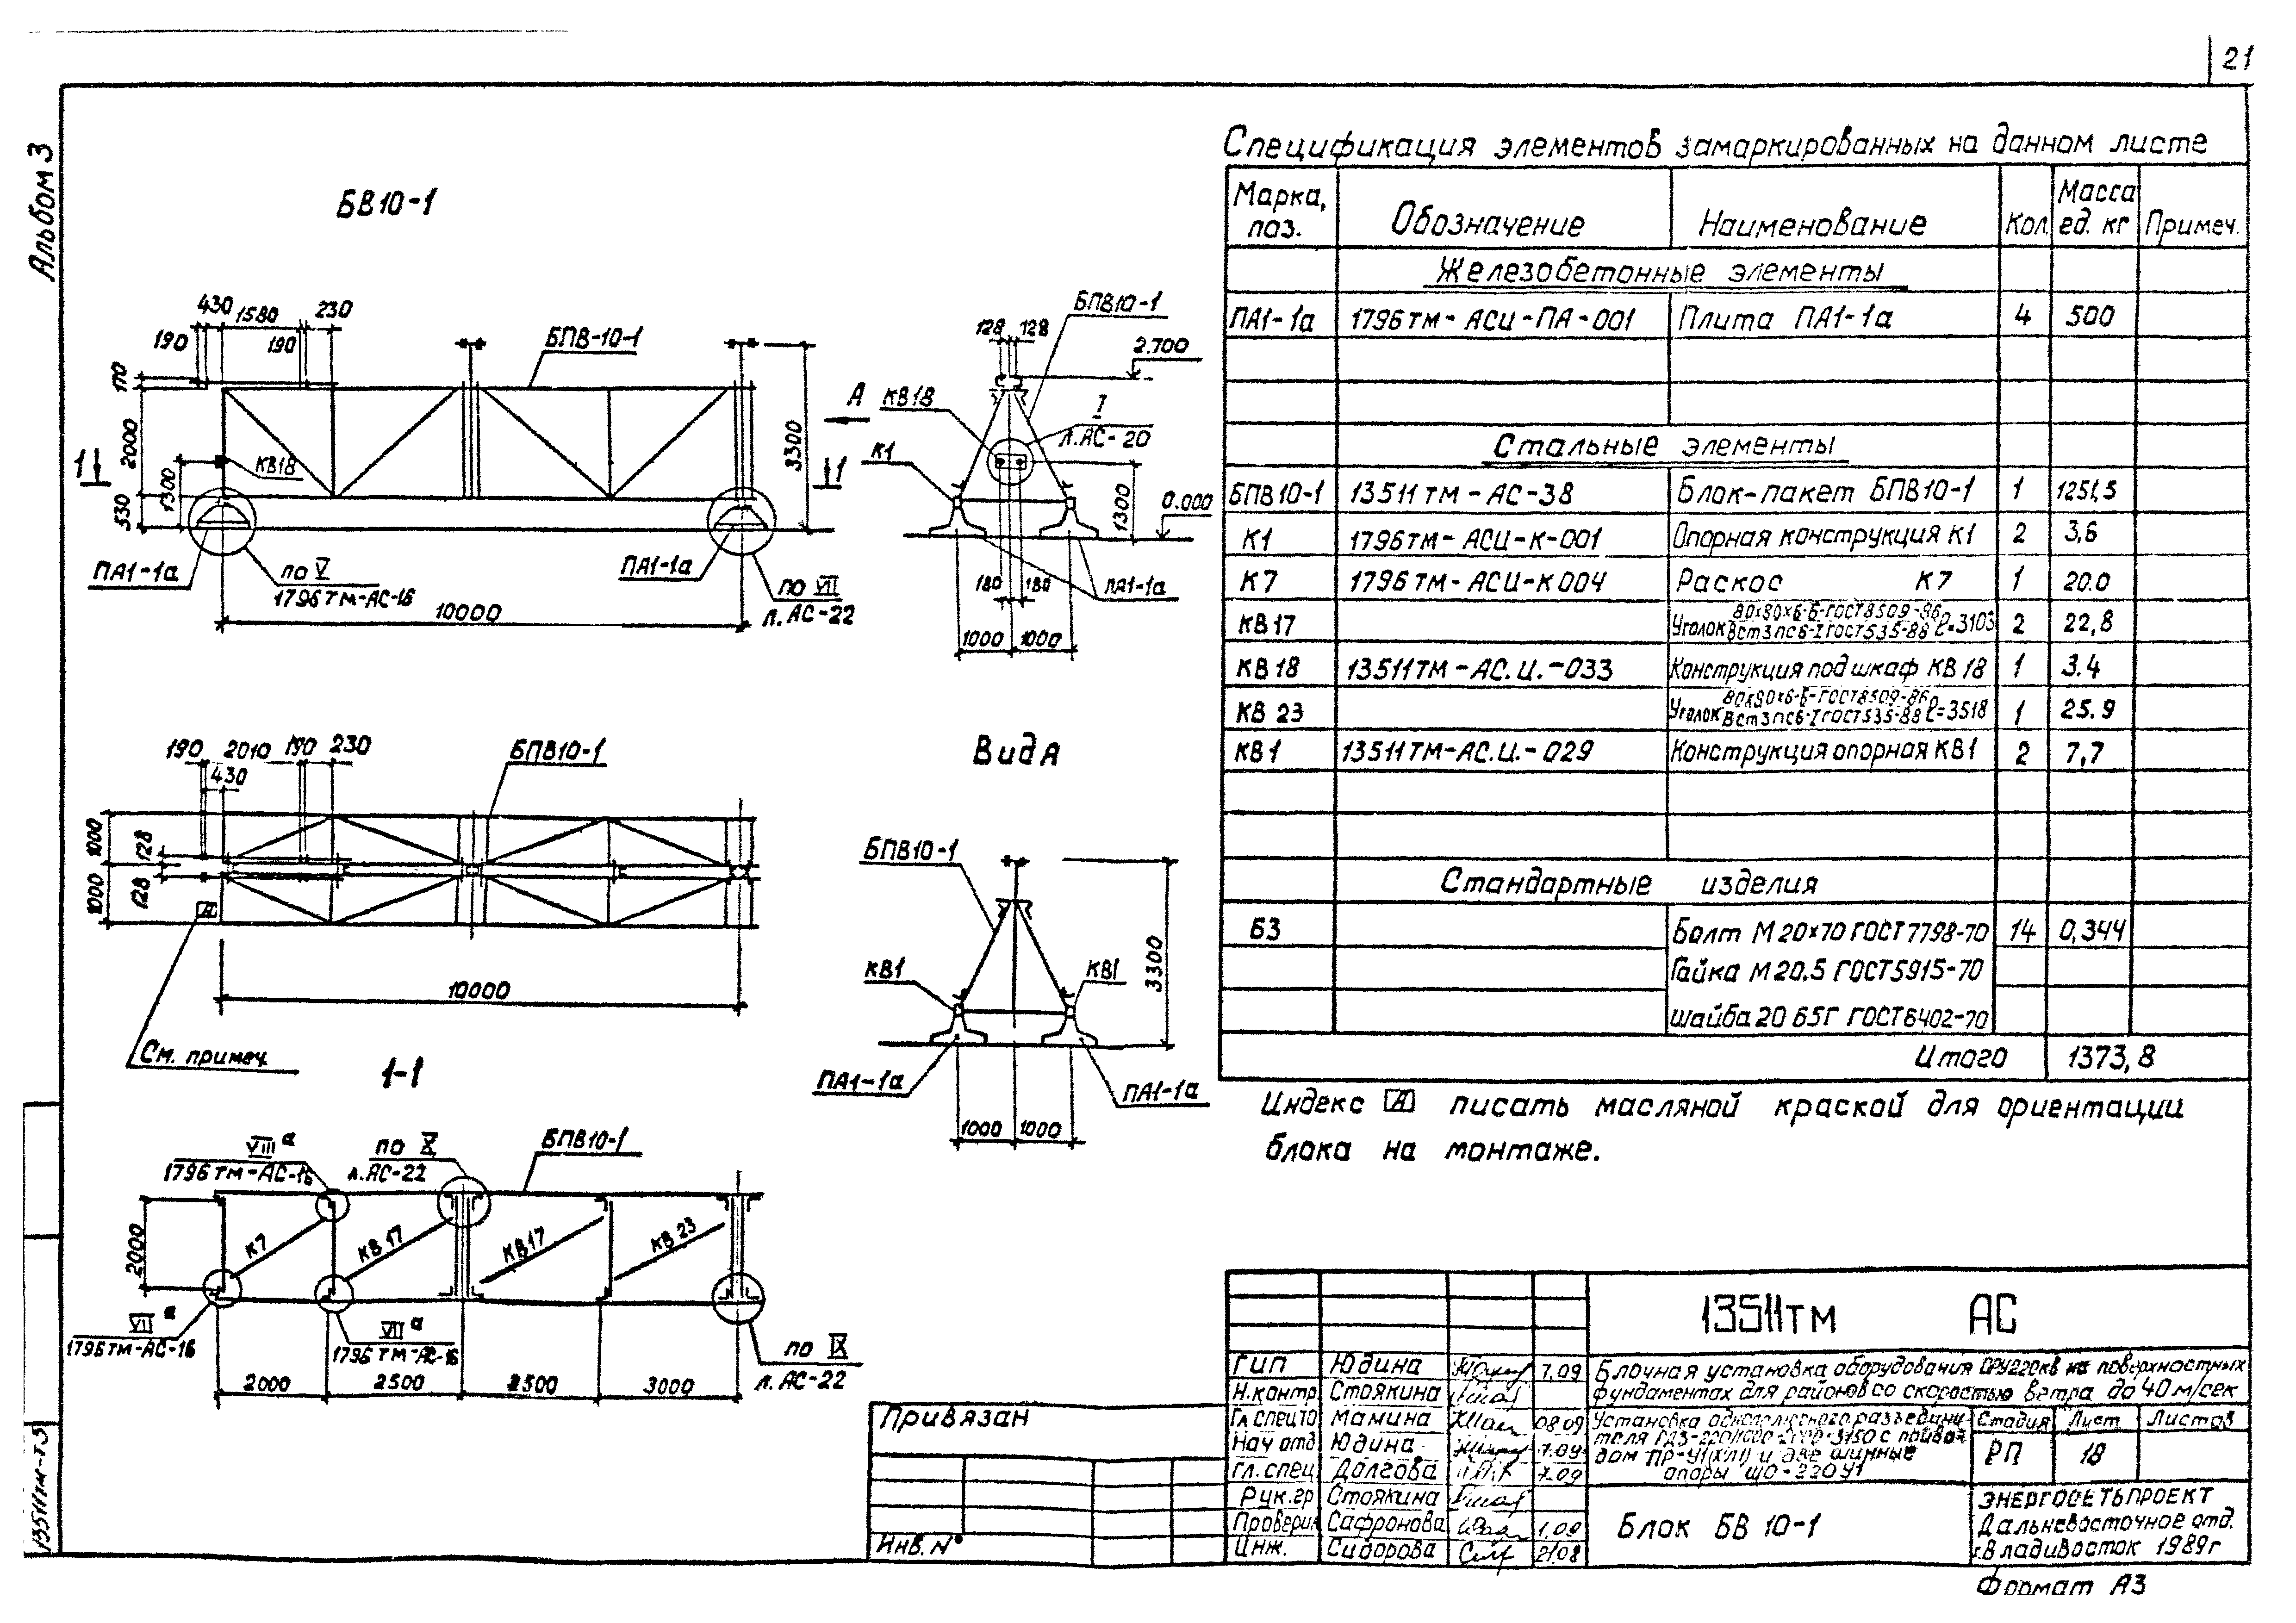 21
Альбом 3
БВ10-1
430 1580 230
190 190
БПВ-10-1
170
2000
1300
530
3300
1 1
А
КВ18
ПА1-1а
по V
1796ТМ-АС-16
ПА1-1а
по VII
л. АС-22
10000
БПВ10-1
128 128
2.700
КВ18
I
л. АС-20
К1
0.000
1300
180 180
ПА1-1а
1000 1000
190 2010 190 230
430
БПВ10-1
1000
128
128
1000
А
10000
См. примеч.
Вид А
БПВ10-1
КВ1
КВ1
3300
ПА1-1а
ПА1-1а
1000 1000
1-1
VIII а
1796ТМ-АС-16
по X
л. АС-22
БПВ10-1
2000
К7
КВ17
КВ17
КВ23
VII а
1796ТМ-АС-16
VII а
1796ТМ-АС-16
по IX
л. АС-22
2000 2500 2500 3000
Спецификация элементов замаркированных на данном листе
Марка, поз. Обозначение Наименование Кол. Масса ед. кг Примеч.
Железобетонные элементы
ПА1-1а 1796тм-АСИ-ПА-001 Плита ПА1-1а 4 500
Стальные элементы
БПВ10-1 13511тм-АС-38 Блок-пакет БПВ10-1 1 1251,5
К1 1796тм-АСИ-К-001 Опорная конструкция К1 2 3,6
К7 1796тм-АСИ-К004 Раскос К7 1 20.0
КВ17 Уголок 80х80х6-Б-ГОСТ8509-86 ВСт3пс6-I ГОСТ535-88 ℓ=3103 2 22,8
КВ18 13511ТМ-АС.И.-033 Конструкция под шкаф КВ18 1 3.4
КВ23 Уголок 80х80х6-Б-ГОСТ8509-86 ВСт3пс6-I ГОСТ535-88 ℓ=3518 1 25.9
КВ1 13511ТМ-АС.И.-029 Конструкция опорная КВ1 2 7,7
Стандартные изделия
Б3 Болт М20х70 ГОСТ7798-70 14 0,344
Гайка М20.5 ГОСТ5915-70
шайба 20 65Г ГОСТ6402-70
Итого 1373,8
Индекс А писать масляной краской для ориентации
блока на монтаже.
13511тм АС
ГИП Юдина 7.09
Н.контр Стоякина
Гл спец ТО Мамина 08.09
Нач отд Юдина 7.09
гл. спец Долгова 7.09
Рук.гр Стоякина
Проверил Сафронова 1.09
Инж. Сидорова 21.08
Блочная установка оборудования ОРУ220кВ на поверхностных
фундаментах для районов со скоростью ветра до 40 м/сек
Установка однополюсного разъедини-
теля с приво-
дом ПР-У1(ХЛ1) и две шинные
опоры ШО-220У1
Стадия Лист Листов
РП 18
Блок БВ 10-1
ЭНЕРГОСЕТЬПРОЕКТ
Дальневосточное отд.
г.Владивосток 1989г
Привязан
Инв. №
13511тм-т3
Формат А3